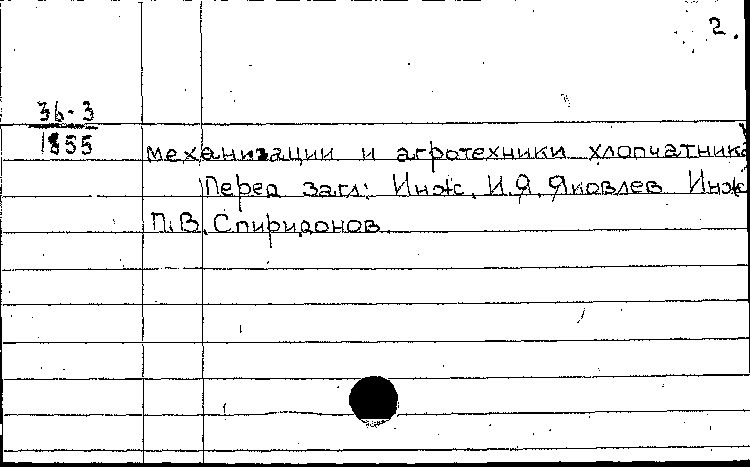 2.
36-3
1855
механизации и агротехники хлопчатника
Перед загл: Инж. И.Я. Яковлев Инж
П.В. Спиридонов.